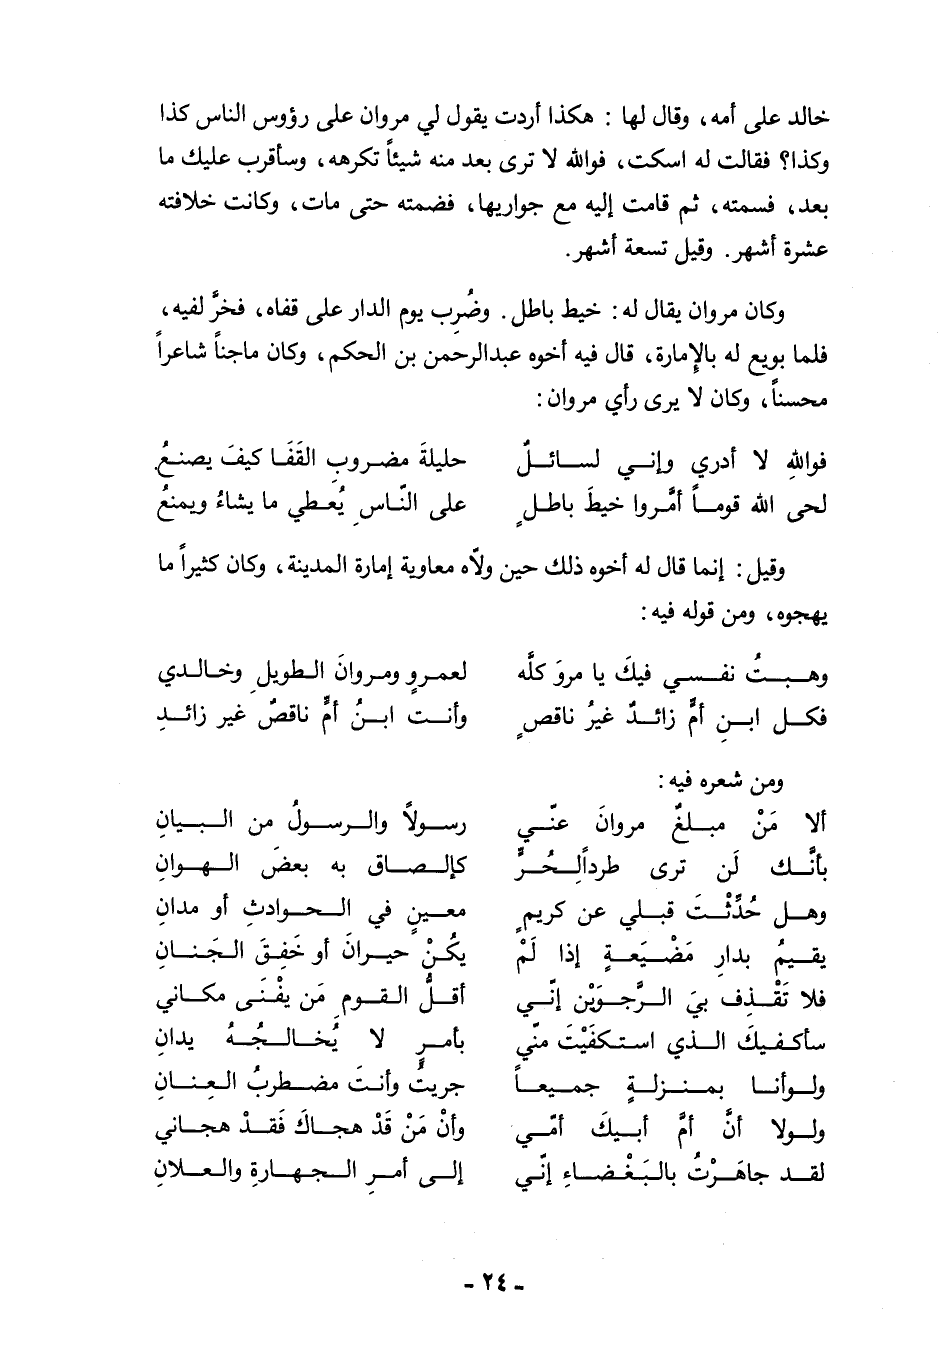 خالد على أمه، وقال لها : هكذا أردت يقول لي مروان على رؤوس الناس كذا
وكذا؟ فقالت له اسكت، فوالله لا ترى بعد منه شيئاً تكرهه، وسأقرب عليك ما
بعد، فسمته، ثم قامت إليه مع جواريها، فضمته حتى مات، وكانت خلافته
عشرة أشهر. وقيل تسعة أشهر.
وكان مروان يقال له: خيط باطل. وضُرِب يوم الدار على قفاه، فخرَّ لفيه،
فلما بويع له بالإِمارة، قال فيه أخوه عبدالرحمن بن الحكم، وكان ماجناً شاعراً
محسناً، وكان لا يرى رأي مروان:
فواللهِ لا أدري وإنـي لسـائـلٌ حليلةَ مضـروبِ القَفَـا كيفَ يصنـعُ
لحى الله قومـاً أمَّروا خيطَ باطـلٍ على النَّـاسِ يُعـطي ما يشاءُ ويمنعُ
وقيل: إنما قال له أخوه ذلك حين ولاّه معاوية إمارة المدينة، وكان كثيراً ما
يهجوه، ومن قوله فيه:
وهـبـتُ نفـسـي فيكَ يا مروَ كلَّه لعمـروٍ ومـروانَ الـطويلِ وخـالـدي
فكـل ابـنِ أمٍّ زائـدٌ غيرُ ناقصٍ وأنـت ابـنُ أمٍّ ناقصٌ غير زائـدِ
ومن شعره فيه:
ألا مَنْ مبـلغٌ مروانَ عنّـي رسـولاً والـرسـولُ من الـبـيانِ
بأنَّـك لَن ترى طرداًلـحُـرٍّ كإلـصـاق به بعضِ الـهـوانِ
وهـل حُدِّثْـتَ قبـلي عن كريمٍ معـينٍ في الـحـوادثِ أو مدانِ
يقـيمُ بدارِ مَضْـيَعـةٍ إذا لَمْ يكُـنْ حيـرانَ أو خَفِـقَ الـجَـنـانِ
فلا تَقْـذِف بيَ الـرَّجـوَيْنِ إنّـي أقـلُّ القـومِ مَن يغْـنـى مكـاني
سأكـفيـكَ الـذي استـكفَيْتَ منّي بأمـرٍ لا يُخـالـجُـهُ يدانِ
ولـوأنـا بمنـزلـةٍ جمـيعـاً جريتُ وأنـتَ مضـطربُ العـنـانِ
ولـولا أنَّ أمَّ أبـيكَ أمّـي وأنْ مَنْ قَدْ هجـاكَ فَقـدْ هجـاني
لقـد جاهَـرْتُ بالـبَغْـضـاءِ إنّي إلـى أمـرِ الـجهـارةِ والـعـلانِ
ـ ٢٤ ـ